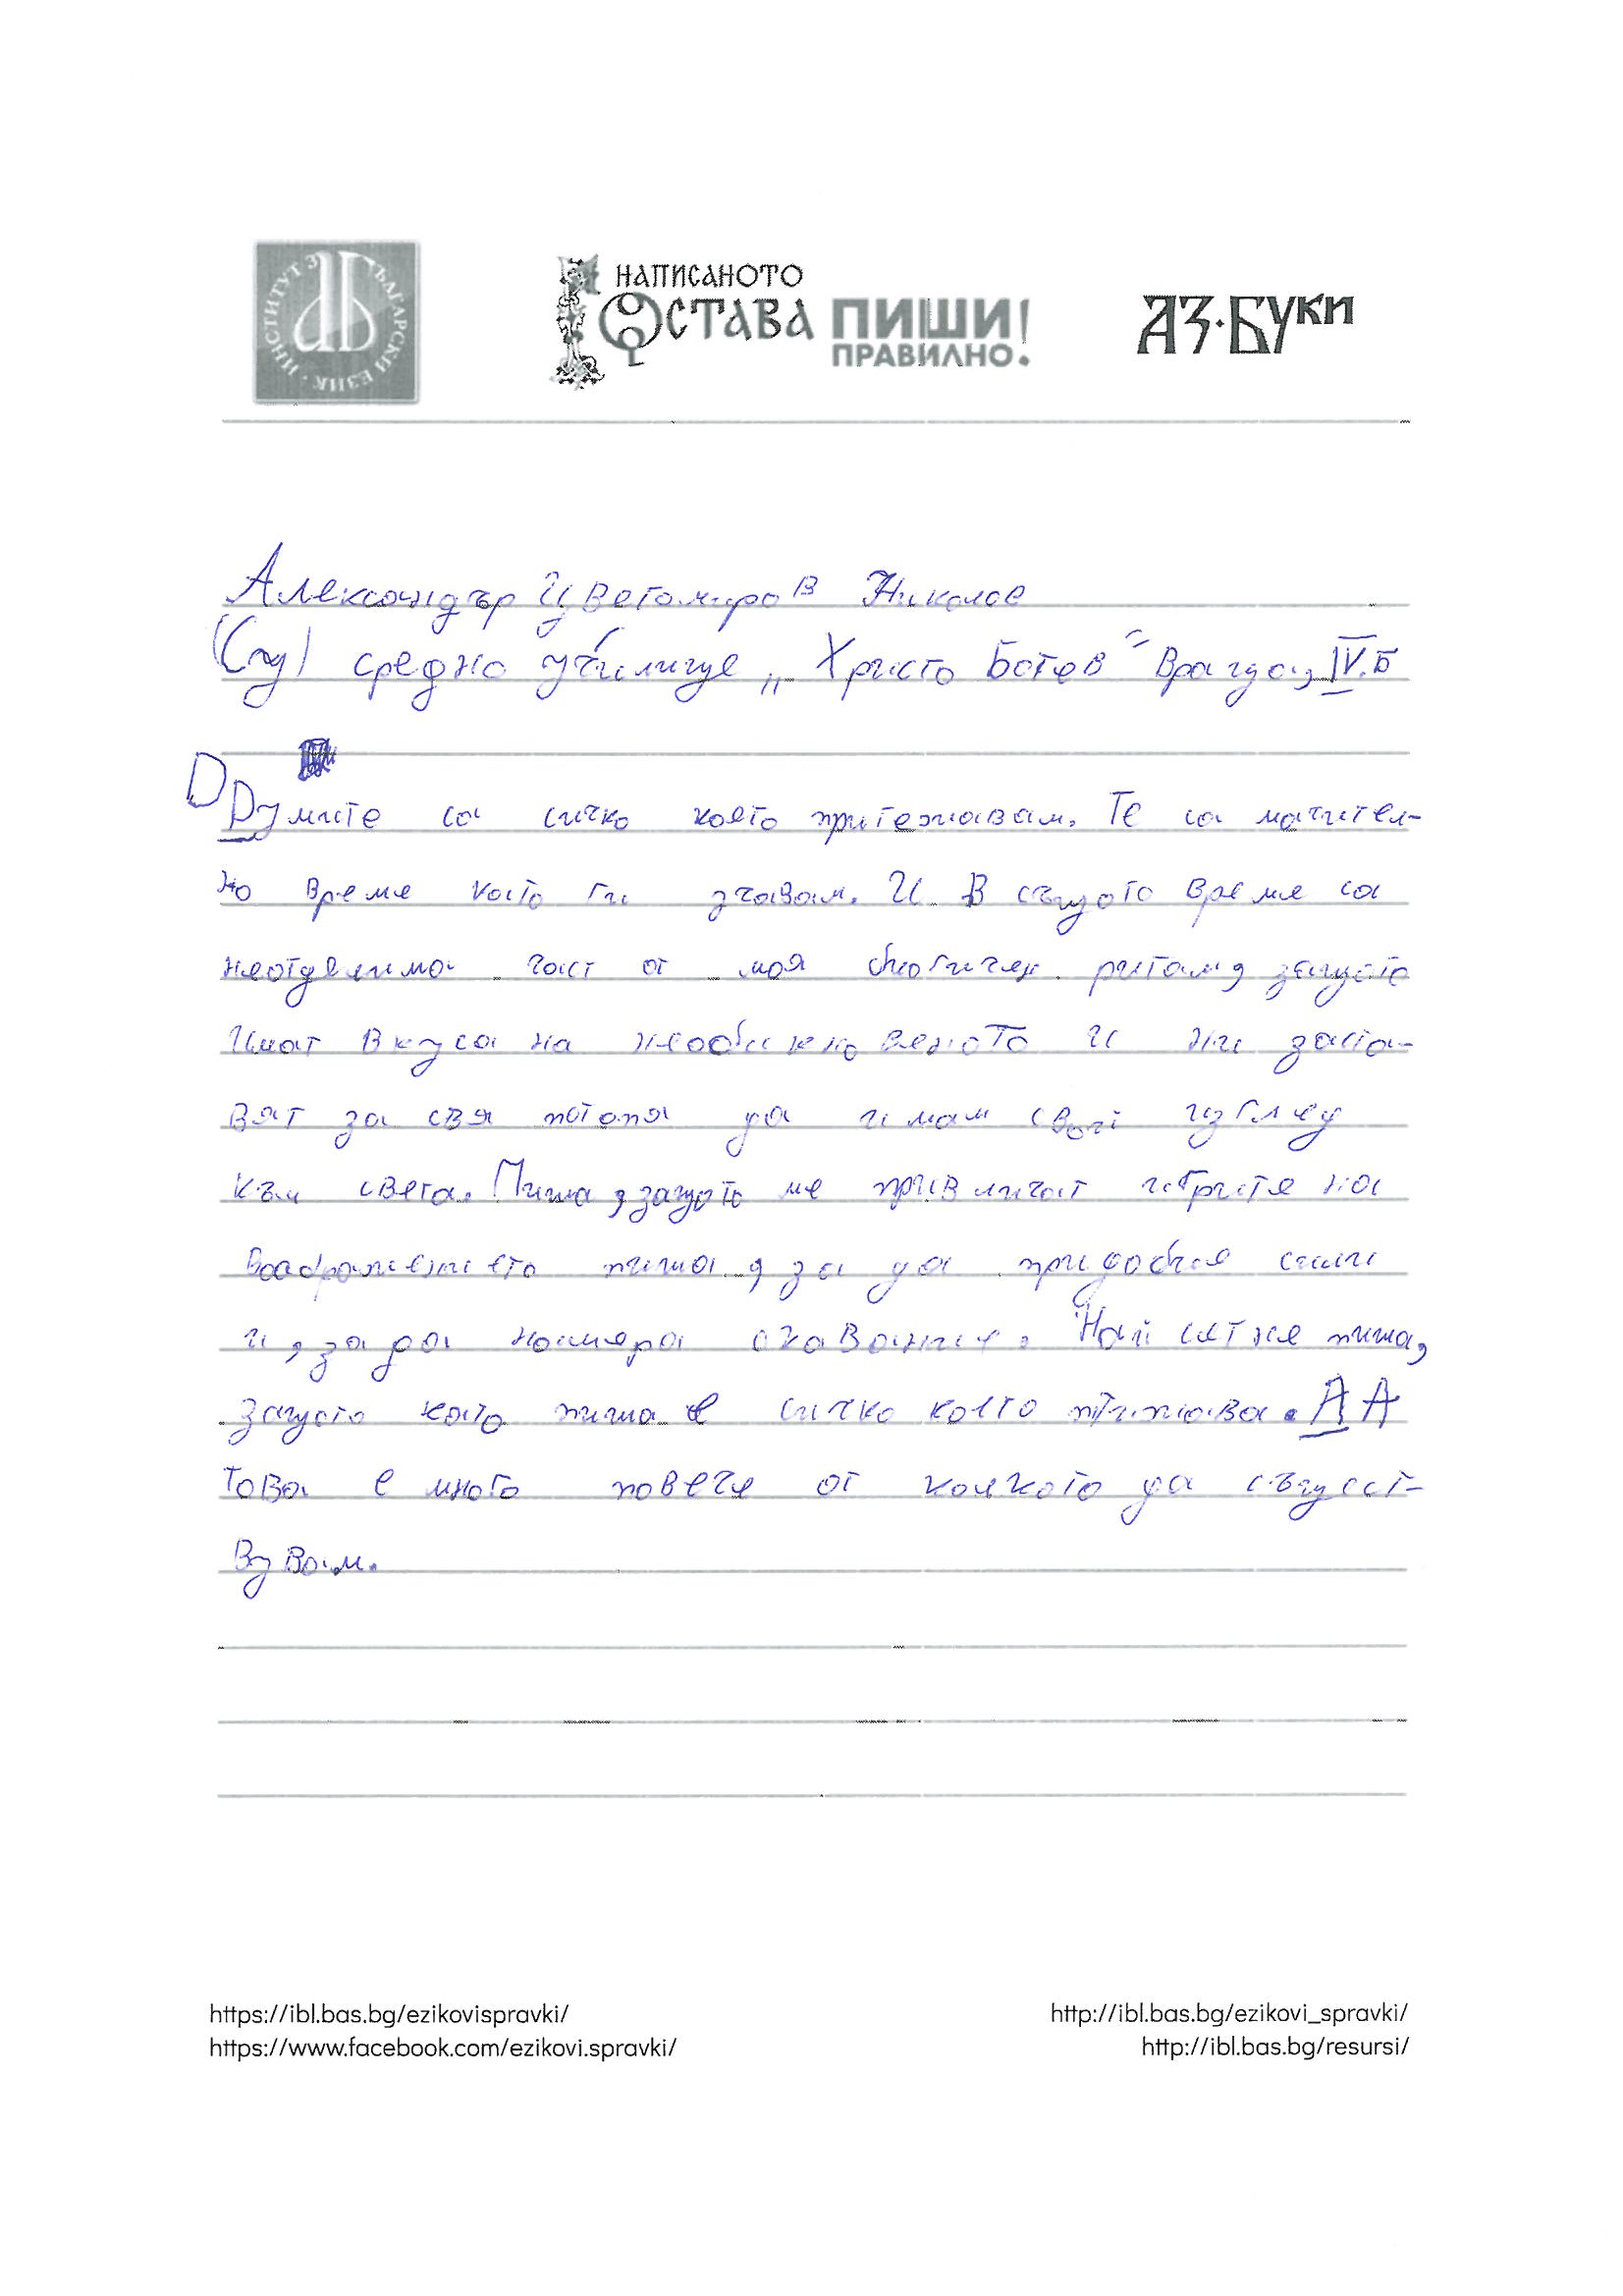 ИНСТИТУТ ЗА БЪЛГАРСКИ ЕЗИК
НАПИСАНОТО
ОСТАВА ПИШИ!
ПРАВИЛНО.
АЗ·БУКИ
Александър Цветомиров Николов
(Су) средно училище „Христо Ботев“ Враца, IV.Б
Думите са сичко което притежавам. Те са мачител-
но време като ги уча. И в същото време са
неотделима част от моя биогичен ритам, защото
имат вкуса на необикновеното и ни заста-
вят за свя да имам свой изглед
към света. Пиша, защото ме привличат игрите на
пиша, за да придобия сили
и, за да намеря Най сетне пиша,
защото като пиша е сичко което А
това е много повече от колкото да същест-
вувам.
https://ibl.bas.bg/ezikovispravki/
https://www.facebook.com/ezikovi.spravki/
http://ibl.bas.bg/ezikovi_spravki/
http://ibl.bas.bg/resursi/